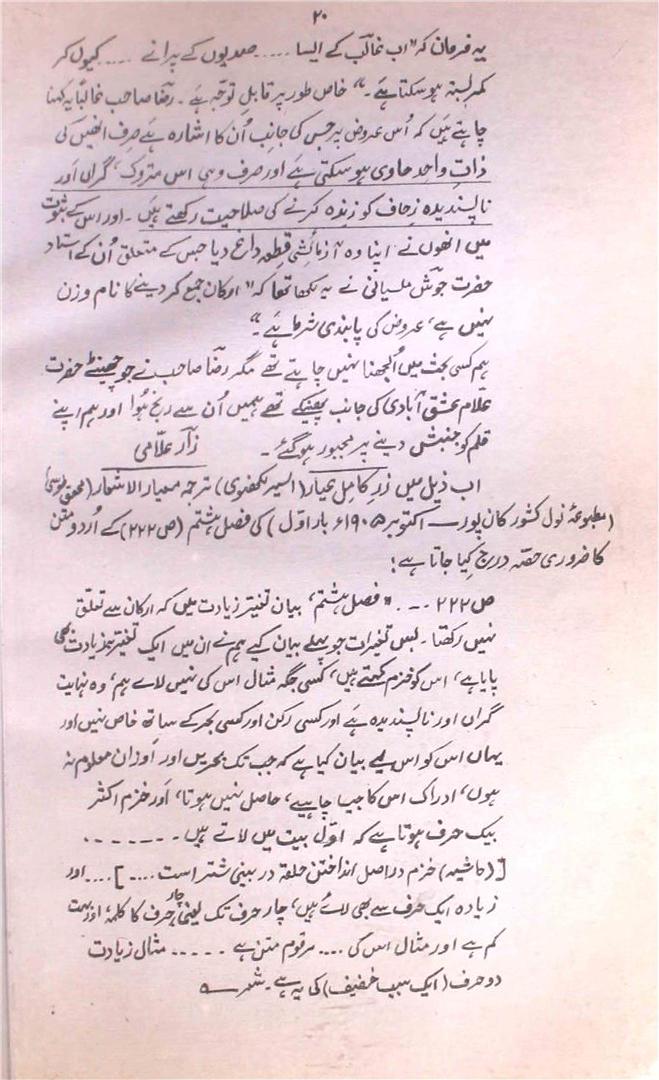 ۲۰
یہ فرمان کہ "اب غالب کے ایسا ..... صدیوں کے پرانے .... کیوں کر
کمربستہ ہو سکتا ہے۔" خاص طور پر قابلِ توجہ ہے۔ رضا صاحب غالباً یہ کہنا
چاہتے ہیں کہ اُس عروض پر جس کی جانب اُن کا اشارہ ہے صرف انھیں کی
ذاتِ واحد حاوی ہو سکتی ہے اور صرف وہی اس متروک، گراں اور
ناپسندیدہ زحاف کو زندہ کرنے کی صلاحیت رکھتے ہیں۔ اور اس کے ثبوت
میں انھوں نے اپنا وہ آزمائشی قطعہ داغ دیا جس کے متعلق اُن کے استاد
حضرت جوشؔ ملسیانی نے یہ لکھا تھا کہ "ارکان جمع کر دینے کا نام وزن
نہیں ہے، عروض کی پابندی شرط ہے۔"
ہم کسی بحث میں اُلجھنا نہیں چاہتے تھے مگر رضا صاحب نے جو چھینٹے حضرت
علام عشق آبادی کی جانب پھینکے تھے ہمیں اُن سے رنج ہوا اور ہم اپنے
قلم کو جنبش دینے پر مجبور ہو گئے۔ زار علامی
اب ذیل میں زرِ کامل عیار (اسیر لکھنوی) ترجمہ معیار الاشعار (محقق طوسی)
(مطبوعۂ نول کشور کان پور ــ اکتوبر ۱۹۰۵ء بار اوّل) کی فصل ہشتم (ص ۲۲۲) کے اُردو متن
کا ضروری حصّہ درج کیا جاتا ہے:
ص ۲۲۲ ... "فصل ہشتم، بیان تغیّر زیادت میں کہ ارکان سے تعلق
نہیں رکھتا۔ لیس تغیرات جو پہلے بیان کیے ہم نے ان میں ایک تغیّر بہ زیادت بھی
پایا ہے، اس کو خزم کہتے ہیں، کسی جگہ مثال اس کی نہیں لائے ہم، وہ نہایت
گراں اور ناپسندیدہ ہے اور کسی رکن اور کسی بحر کے ساتھ خاص نہیں اور
یہاں اس کو اس لیے بیان کیا ہے کہ جب تک بحریں اور اوزان معلوم نہ
ہوں، ادراک اس کا جیسا چاہیے، حاصل نہیں ہوتا، اور خزم اکثر
بیک حرف ہوتا ہے کہ اوّل بیت میں لاتے ہیں۔ ......
[(حاشیہ) خزم دراصل انداختن حلقہ در بینی شتر است ....] .... اور
زیادہ ایک حرف سے بھی لائے ہیں، چار حرف تک یعنی چار حرف کا کلمہ، اور بہت
کم ہے اور مثال اس کی .... مرقوم متن ہے ..... مثال زیادت
دو حرف (ایک سببِ خفیف) کی یہ ہے۔ شعر ؎